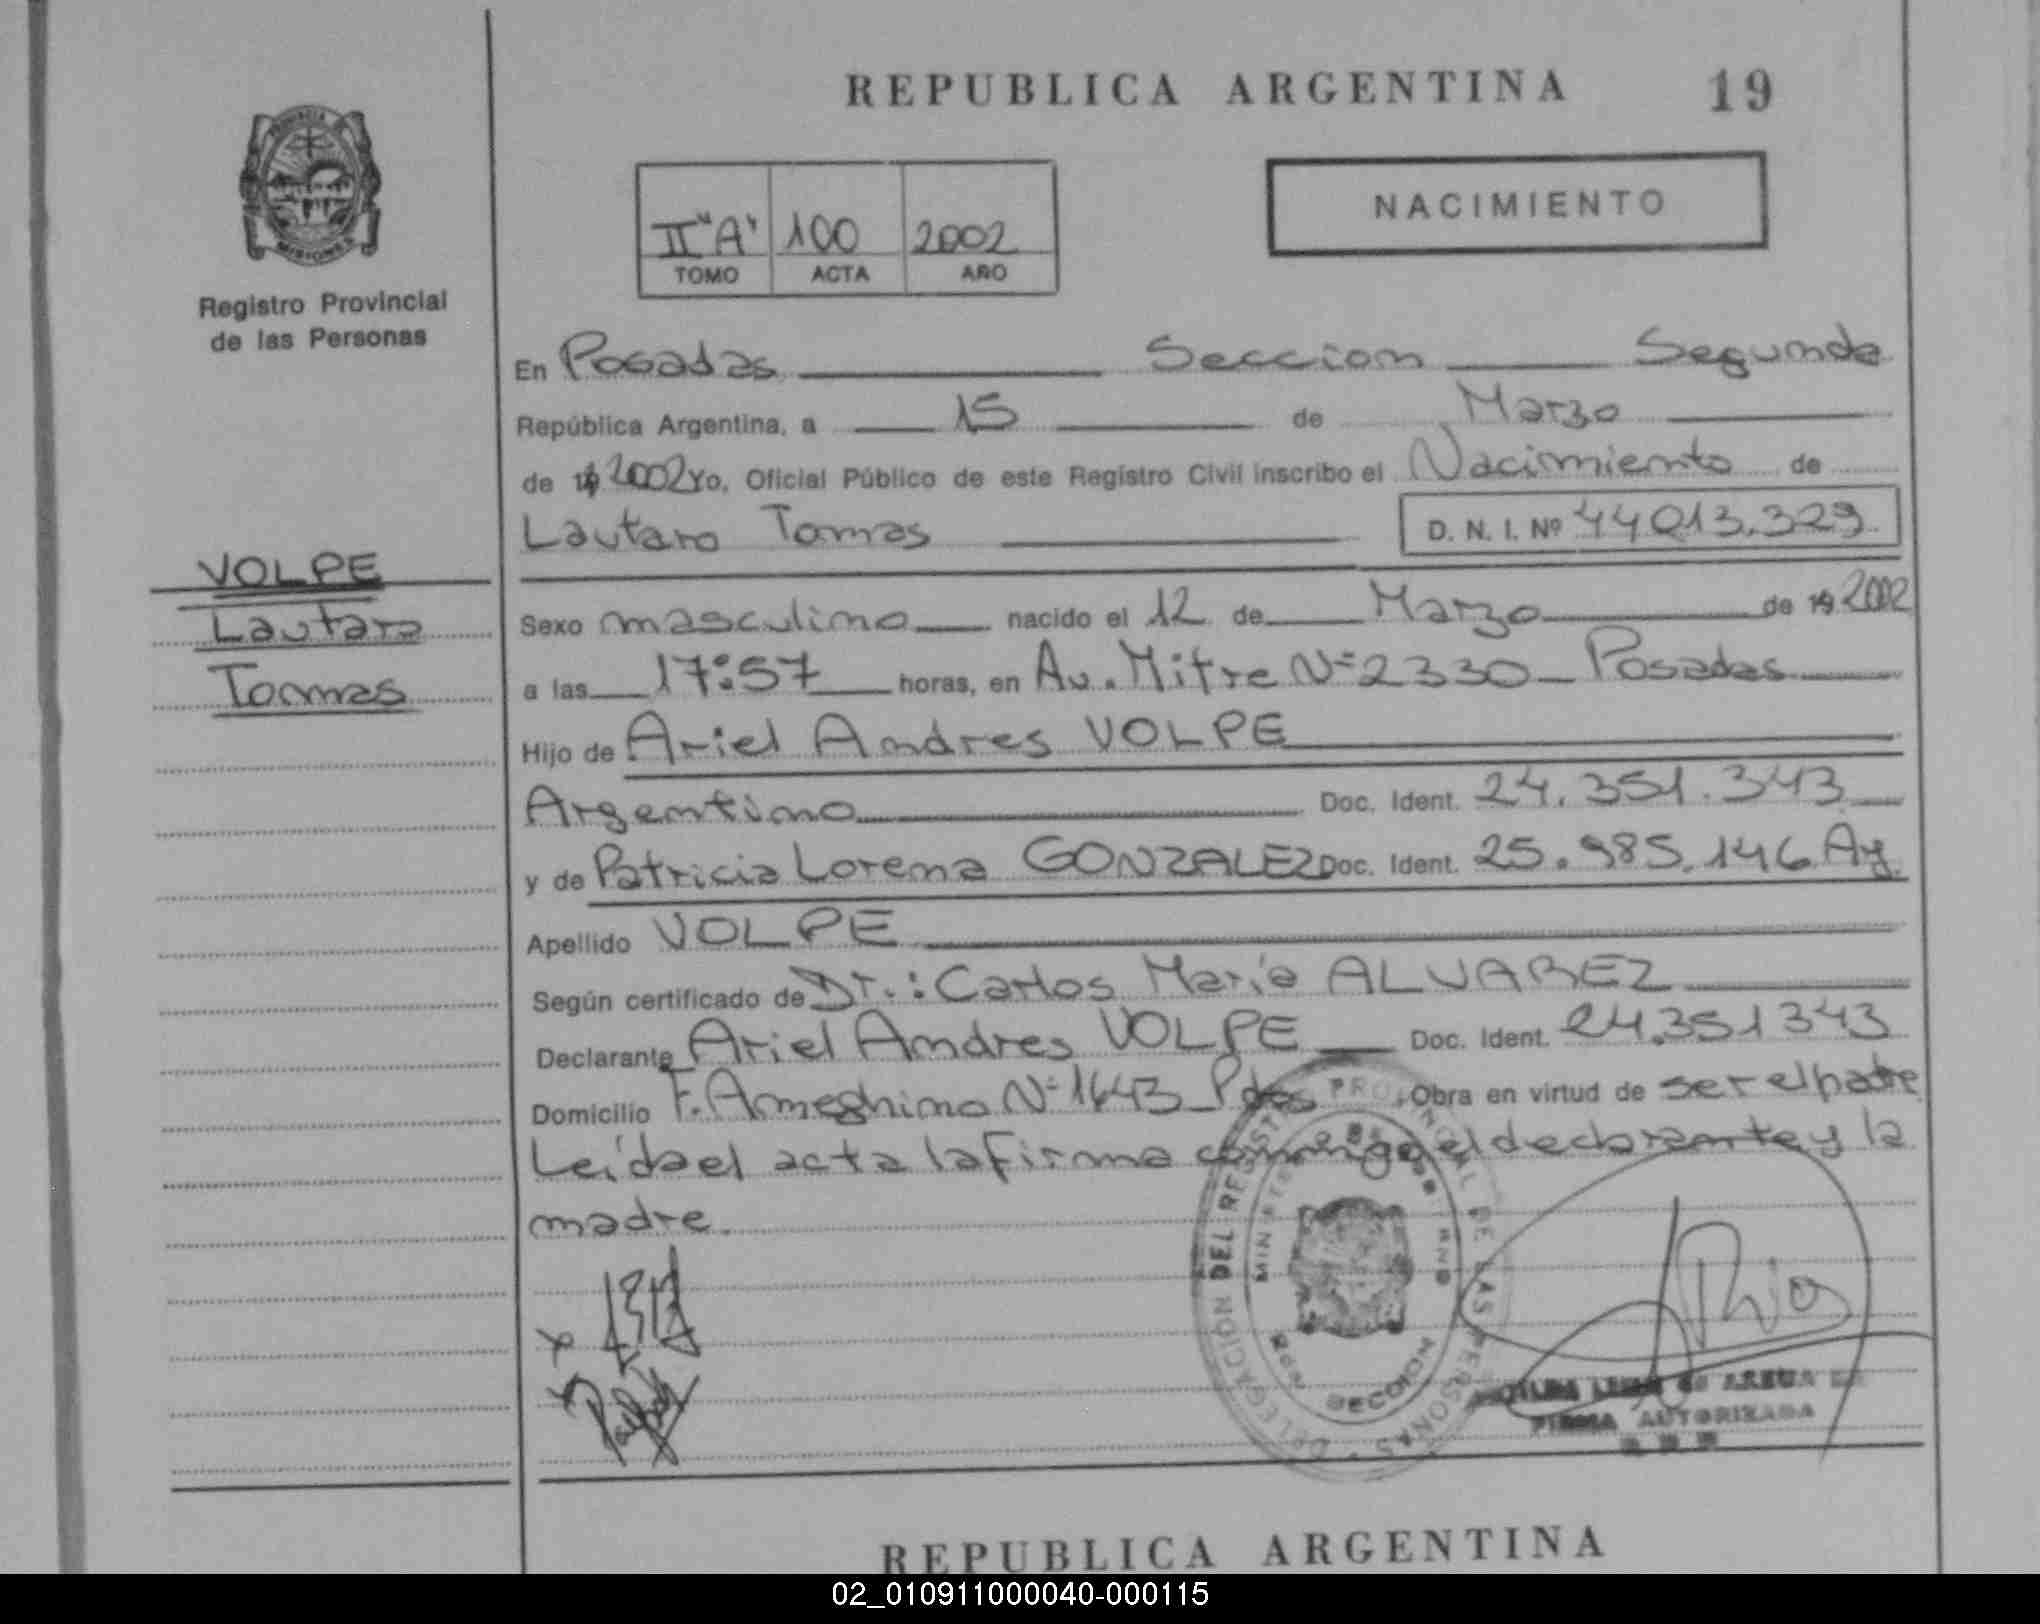 REPUBLICA ARGENTINA 19
PROVINCIA DE
MISIONES
Registro Provincial
de las Personas
II "A" 100 2002
TOMO ACTA AÑO
NACIMIENTO
En Posadas Seccion Segunda
República Argentina, a 15 de Marzo
de 19 2002 Yo, Oficial Público de este Registro Civil inscribo el Nacimiento de
Lautaro Tomas D. N. I. Nº 44013.329
VOLPE
Lautaro
Tomas
Sexo masculino nacido el 12 de Marzo de 19 2002
a las 17:57 horas, en Av. Mitre Nº 2330 - Posadas
Hijo de Ariel Andres VOLPE
Argentino Doc. Ident. 24.351.343
y de Patricia Lorena GONZALEZ Doc. Ident. 25.985.146 Ag.
Apellido VOLPE
Según certificado de Dr.: Carlos Maria ALVAREZ
Declarante Ariel Andres VOLPE Doc. Ident. 24.351343
Domicilio F. Ameghino Nº 1643 - Pdas Obra en virtud de ser el padre
Leída el acta la firma conmigo el declarante y la
madre.
DELEGACION DEL REGISTRO PROVINCIAL DE LAS PERSONAS
SECCION
FIRMA AUTORIZADA
REPUBLICA ARGENTINA
02_010911000040-000115